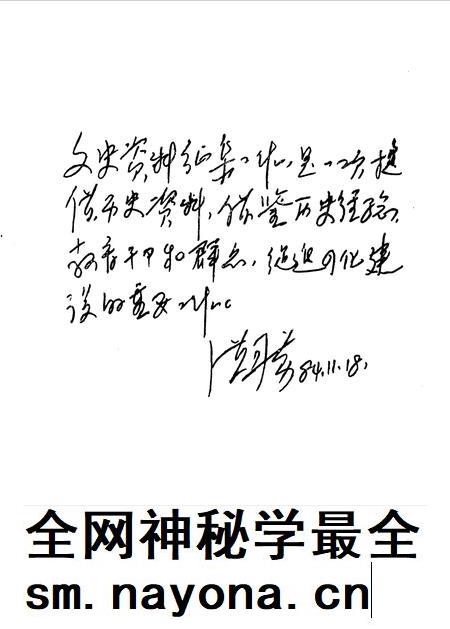 文史资料征集工作，是一项提
供历史资料，借鉴历史经验，
教育干部和群众，促进四化建
设的重要工作。
84.11.18.
全网神秘学最全
sm.nayona.cn